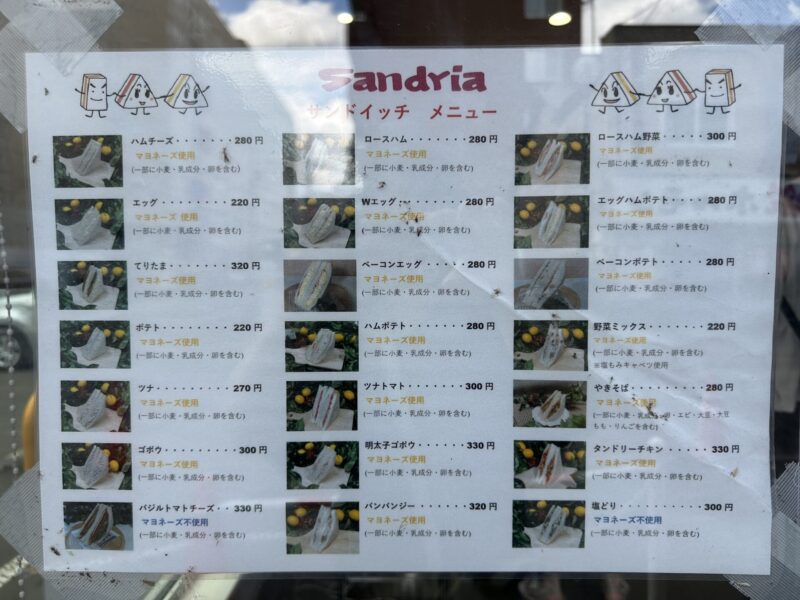 Sandria
サンドイッチ メニュー
ハムチーズ・・・・・280円
マヨネーズ使用
(一部に小麦・乳成分・卵を含む)
ロースハム・・・・・・・280円
マヨネーズ使用
(一部に小麦・乳成分・卵を含む)
ロースハム野菜・・・・・300円
マヨネーズ使用
(一部に小麦・乳成分・卵を含む)
エッグ・・・・・・・220円
マヨネーズ 使用
(一部に小麦・乳成分・卵を含む)
Wエッグ・・・・・・・・280円
マヨネーズ使用
(一部に小麦・乳成分・卵を含む)
エッグハムポテト・・・・280円
マヨネーズ使用
(一部に小麦・乳成分・卵を含む)
てりたま・・・・・・320円
マヨネーズ使用
(一部に小麦・乳成分・卵を含む)
ベーコンエッグ・・・・・280円
マヨネーズ使用
(一部に小麦・乳成分・卵を含む)
ベーコンポテト・・・・・280円
マヨネーズ使用
(一部に小麦・乳成分・卵を含む)
ポテト・・・・・・・220円
マヨネーズ使用
(一部に小麦・乳成分・卵を含む)
ハムポテト・・・・・・・280円
マヨネーズ使用
(一部に小麦・乳成分・卵を含む)
野菜ミックス・・・・・・220円
マヨネーズ使用
(一部に小麦・乳成分・卵を含む)
※塩もみキャベツ使用
ツナ・・・・・・・・270円
マヨネーズ使用
(一部に小麦・乳成分・卵を含む)
ツナトマト・・・・・・・300円
マヨネーズ使用
(一部に小麦・乳成分・卵を含む)
やきそば・・・・・・・・280円
マヨネーズ使用
(一部に小麦・乳成分・卵・エビ・大豆・大豆
もも・りんごを含む)
ゴボウ・・・・・・・・300円
マヨネーズ使用
(一部に小麦・乳成分・卵を含む)
明太子ゴボウ・・・・・・330円
マヨネーズ使用
(一部に小麦・乳成分・卵を含む)
タンドリーチキン・・・・330円
マヨネーズ使用
(一部に小麦・乳成分・卵を含む)
バジルトマトチーズ・・330円
マヨネーズ不使用
(一部に小麦・乳成分・卵を含む)
バンバンジー・・・・・・320円
マヨネーズ使用
(一部に小麦・乳成分・卵を含む)
塩どり・・・・・・・・・300円
マヨネーズ不使用
(一部に小麦・乳成分・卵を含む)